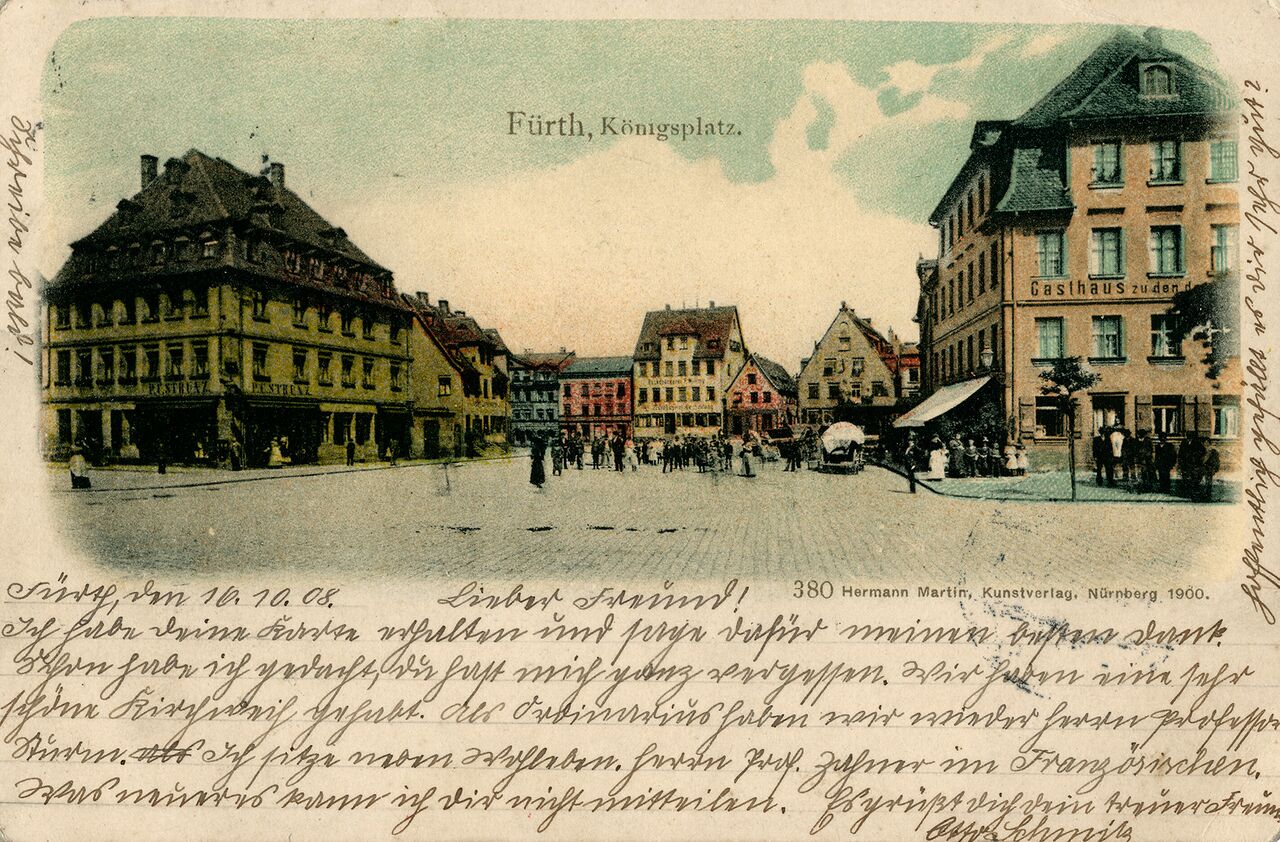 Fürth, Königsplatz.
Gasthaus zu den d
PESTRUAZ
PESTRUAZ
380 Hermann Martin, Kunstverlag, Nürnberg 1900.
Fürth, den 16. 10. 08. Lieber Freund!
Ich habe deine Karte erhalten und sage dafür meinen besten Dank.
Schon habe ich gedacht, du hast mich ganz vergessen. Wir haben eine sehr
schöne Kirchweih gehabt. Als Ordinarius haben wir wieder Herrn Professor
Sturm. Als Ich sitze neben Wohleben. Herrn Prof. Zahner im Französischen.
Was neueres kann ich dir nicht mitteilen. Es grüßt dich dein treuer Freund
Otto Schmitz
Schreibe bald!